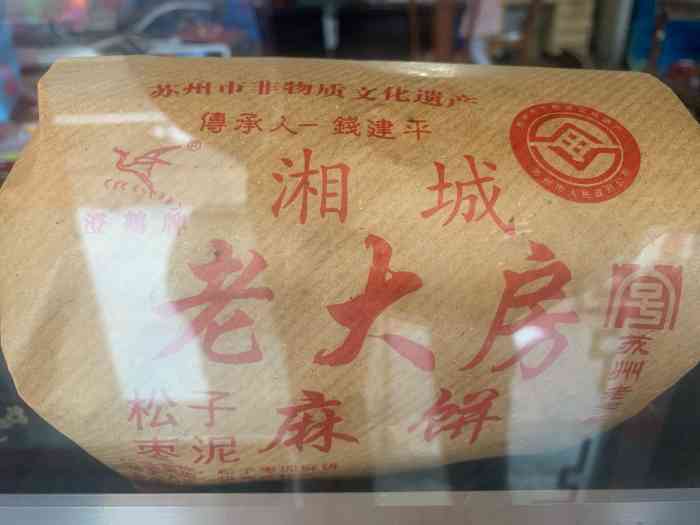 苏州市非物质文化遗产
傳承人一錢建平
®
澄鹤牌
湘城
老大房
松子
枣泥
麻饼
苏州老